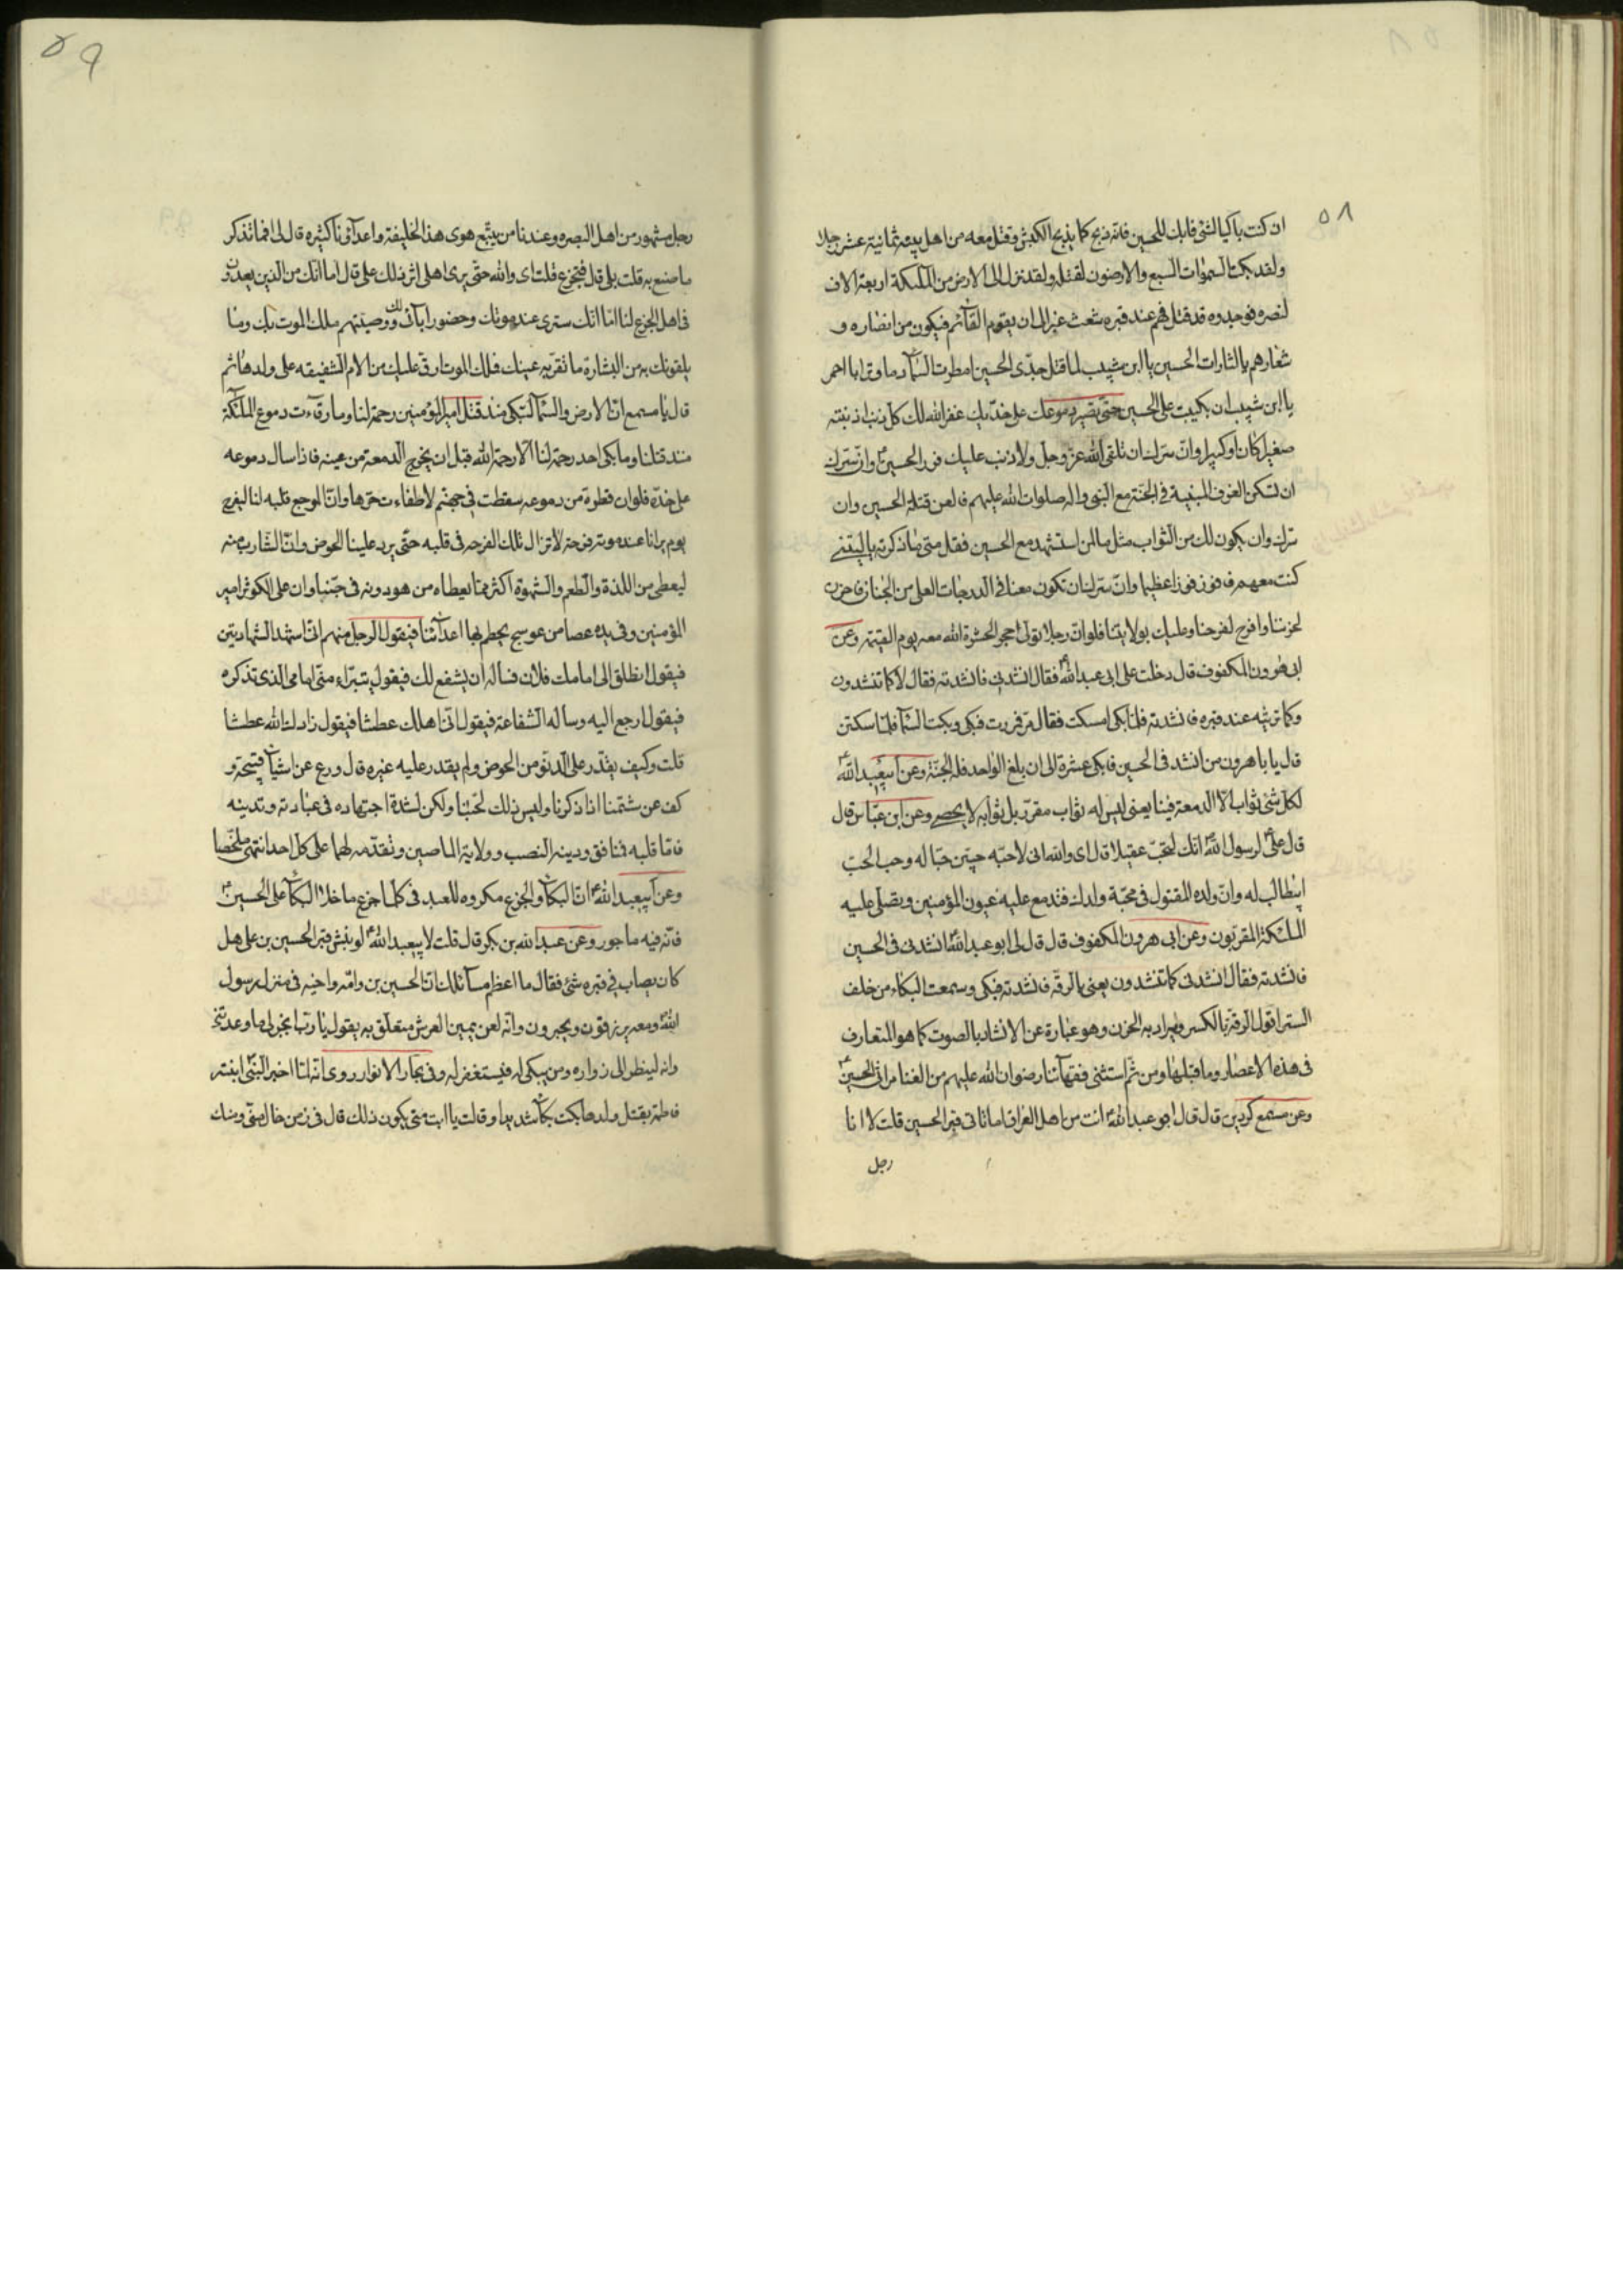 ٥٨
ان كنت باكيا لشئ فابك للحسين فانه ذبح كما يذبح الكبش وقتل معه من اهل بيته ثمانية عشر رجلا
ولقد بكت السموات السبع والارضون لقتله ولقد نزل الى الارض من الملئكة اربعة الاف
لنصره فوجدوه قد قتل فهم عند قبره شعث غبر الى ان يقوم القائم فيكون من انصاره و
شعارهم يا لثارات الحسين يا ابن شبيب لما قتل جدى الحسين امطرت السماء دما وترابا احمر
يا ابن شبيب ان بكيت على الحسين حتى تصير دموعك على خديك غفر الله لك كل ذنب اذنبته
صغيرا كان او كبيرا وان سرك ان تلقى الله عز وجل ولا ذنب عليك فزر الحسين وان سرك
ان تسكن الغرف المبنية في الجنة مع النبى واله صلوات الله عليهم فالعن قتلة الحسين وان
سرك ان يكون لك من الثواب مثل ما لمن استشهد مع الحسين فقل متى ما ذكرته يا ليتنى
كنت معهم فافوز فوزا عظيما وان سرك ان تكون معنا فى الدرجات العلى من الجنان فاحزن
لحزننا وافرح لفرحنا وعليك بولايتنا فلو ان رجلا تولى حجرا لحشره الله معه يوم القيمة وعن
ابى هرون المكفوف قال دخلت على ابى عبد الله فقال انشدنى فانشدته فقال لا كما تنشدون
وكما ترثيه عند قبره فانشدته فلما بكى امسكت فقال مر فمررت فبكى وبكت النسا فلما سكتن
قال يا باهرون من انشد فى الحسين فابكى عشرة الى ان بلغ الواحد فله الجنة وعن ابيعبد الله
لكل شئ ثواب الا الدمعة فينا يعنى ليس له ثواب مقرر بل ثوابه لا يحصى وعن ابن عباس قال
قال على لرسول الله انك لتحب عقيلا قال اى والله انى لاحبه حبين حبا له وحب الحب
ابيطالب له وان ولده المقتول فى محبة ولدك فتدمع عليه عيون المؤمنين وتصلى عليه
الملئكة المقربون وعن ابى هرون المكفوف قال قال لى ابو عبد الله انشدنى فى الحسين
فانشدته فقال انشدنى كما تنشدون يعنى بالرقة فانشدته فبكى وسمعت البكاء من خلف
الستر اقول الرقة بالكسر ويراد به الحزن وهو عبارة عن الانشاد بالصوت كما هو المتعارف
فى هذه الاعصار وما قبلها ومن ثم استثنى فقهائنا رضوان الله عليهم من الغنا مراثى الحسين
وعن مسمع كردين قال قال ابو عبد الله انت من اهل العراق اما تاتى قبر الحسين قلت لا انا
رجل
٥٩
رجل مشهور من اهل البصره وعندنا من يتبع هوى هذا الخليفة واعداؤنا كثيره قال لى افما تذكر
ما صنع به قلت بلى قال فتجزع قلت اى والله حتى يرى اهلى اثر ذلك على قال اما انك من الذين يعدون
فى اهل الجزع لنا اما انك سترى عند موتك وحضور ابائى لك ووصيتهم ملك الموت بك وما
يلقونك به من البشارة ما تقر به عينك فملك الموت ارق عليك من الام الشفيقه على ولدها ثم
قال يا مسمع ان الارض والسماء لتبكى منذ قتل امير المؤمنين رحمة لنا وما رقأت دموع الملائكة
منذ قتلنا وما بكى احد رحمة لنا الا رحمه الله قبل ان يخرج الدمعة من عينه فاذا سال دموعه
على خده فلو ان قطرة من دموعه سقطت فى جهنم لاطفاءت حرها وان الموجع قلبه لنا ليفرح
يوم يرانا عند موته فرحة لا تزال تلك الفرحه فى قلبه حتى يرد علينا الحوض وان الشارب منه
ليعطى من اللذة والطعم والشهوة اكثر مما يعطاه من هو دونه فى حبنا وان على الكوثر امير
المؤمنين وفى يده عصا من عوسج يحطم بها اعدائنا فيقول الرجل منهم انى اشهد الشهادتين
فيقول انطلق الى امامك فلان فساله ان يشفع لك فيقول يتبراء منى امامى الذى تذكره
فيقول ارجع اليه وساله الشفاعة فيقول انى اهلك عطشا فيقول زادك الله عطشا
قلت وكيف يقدر على الدنو من الحوض ولم يقدر عليه غيره قال ورع عن اشياء قبيحة و
كف عن شتمنا اذا ذكرنا وليس ذلك لحبنا ولكن لشدة اجتهاده فى عبادته وتدينه
فاما قلبه فنافق ودينه النصب وولاية الماضين وتقدمه لهما على كل احد انتهى ملخصا
وعن ابيعبد الله ان البكاء والجزع مكروه للعبد فى كلما جزع ما خلا البكاء على الحسين
فانه فيه ماجور وعن عبد الله بن بكر قال قلت لابيعبد الله لو نبش قبر الحسين بن على هل
كان يصاب فى قبره شئ فقال ما اعظم مسائلك ان الحسين بن وامه واخيه فى منزل رسول
الله ومعه يرزقون ويحبرون وانه لعن يمين العرش متعلق به يقول يا رب انجز لى ما وعدتنى
وانه لينظر الى زواره ومن يبكى له فيستغفر له وفى بحار الانوار روى انه لما اخبر النبى ابنته
فاطمة بقتل ولدها بكت بكاء شديدا وقالت يا ابت متى يكون ذلك قال فى زمن خال منى ومنك